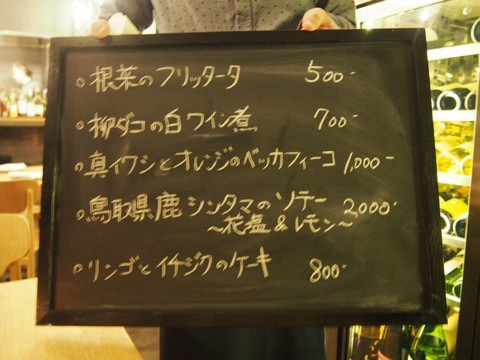 ○根菜のフリッタータ 500-
○柳ダコの白ワイン煮 700-
○真イワシとオレンジのベッカフィーコ 1,000-
○鳥取県鹿シンタマのソテー 2,000-
～花塩&レモン～
○リンゴとイチジクのケーキ 800-